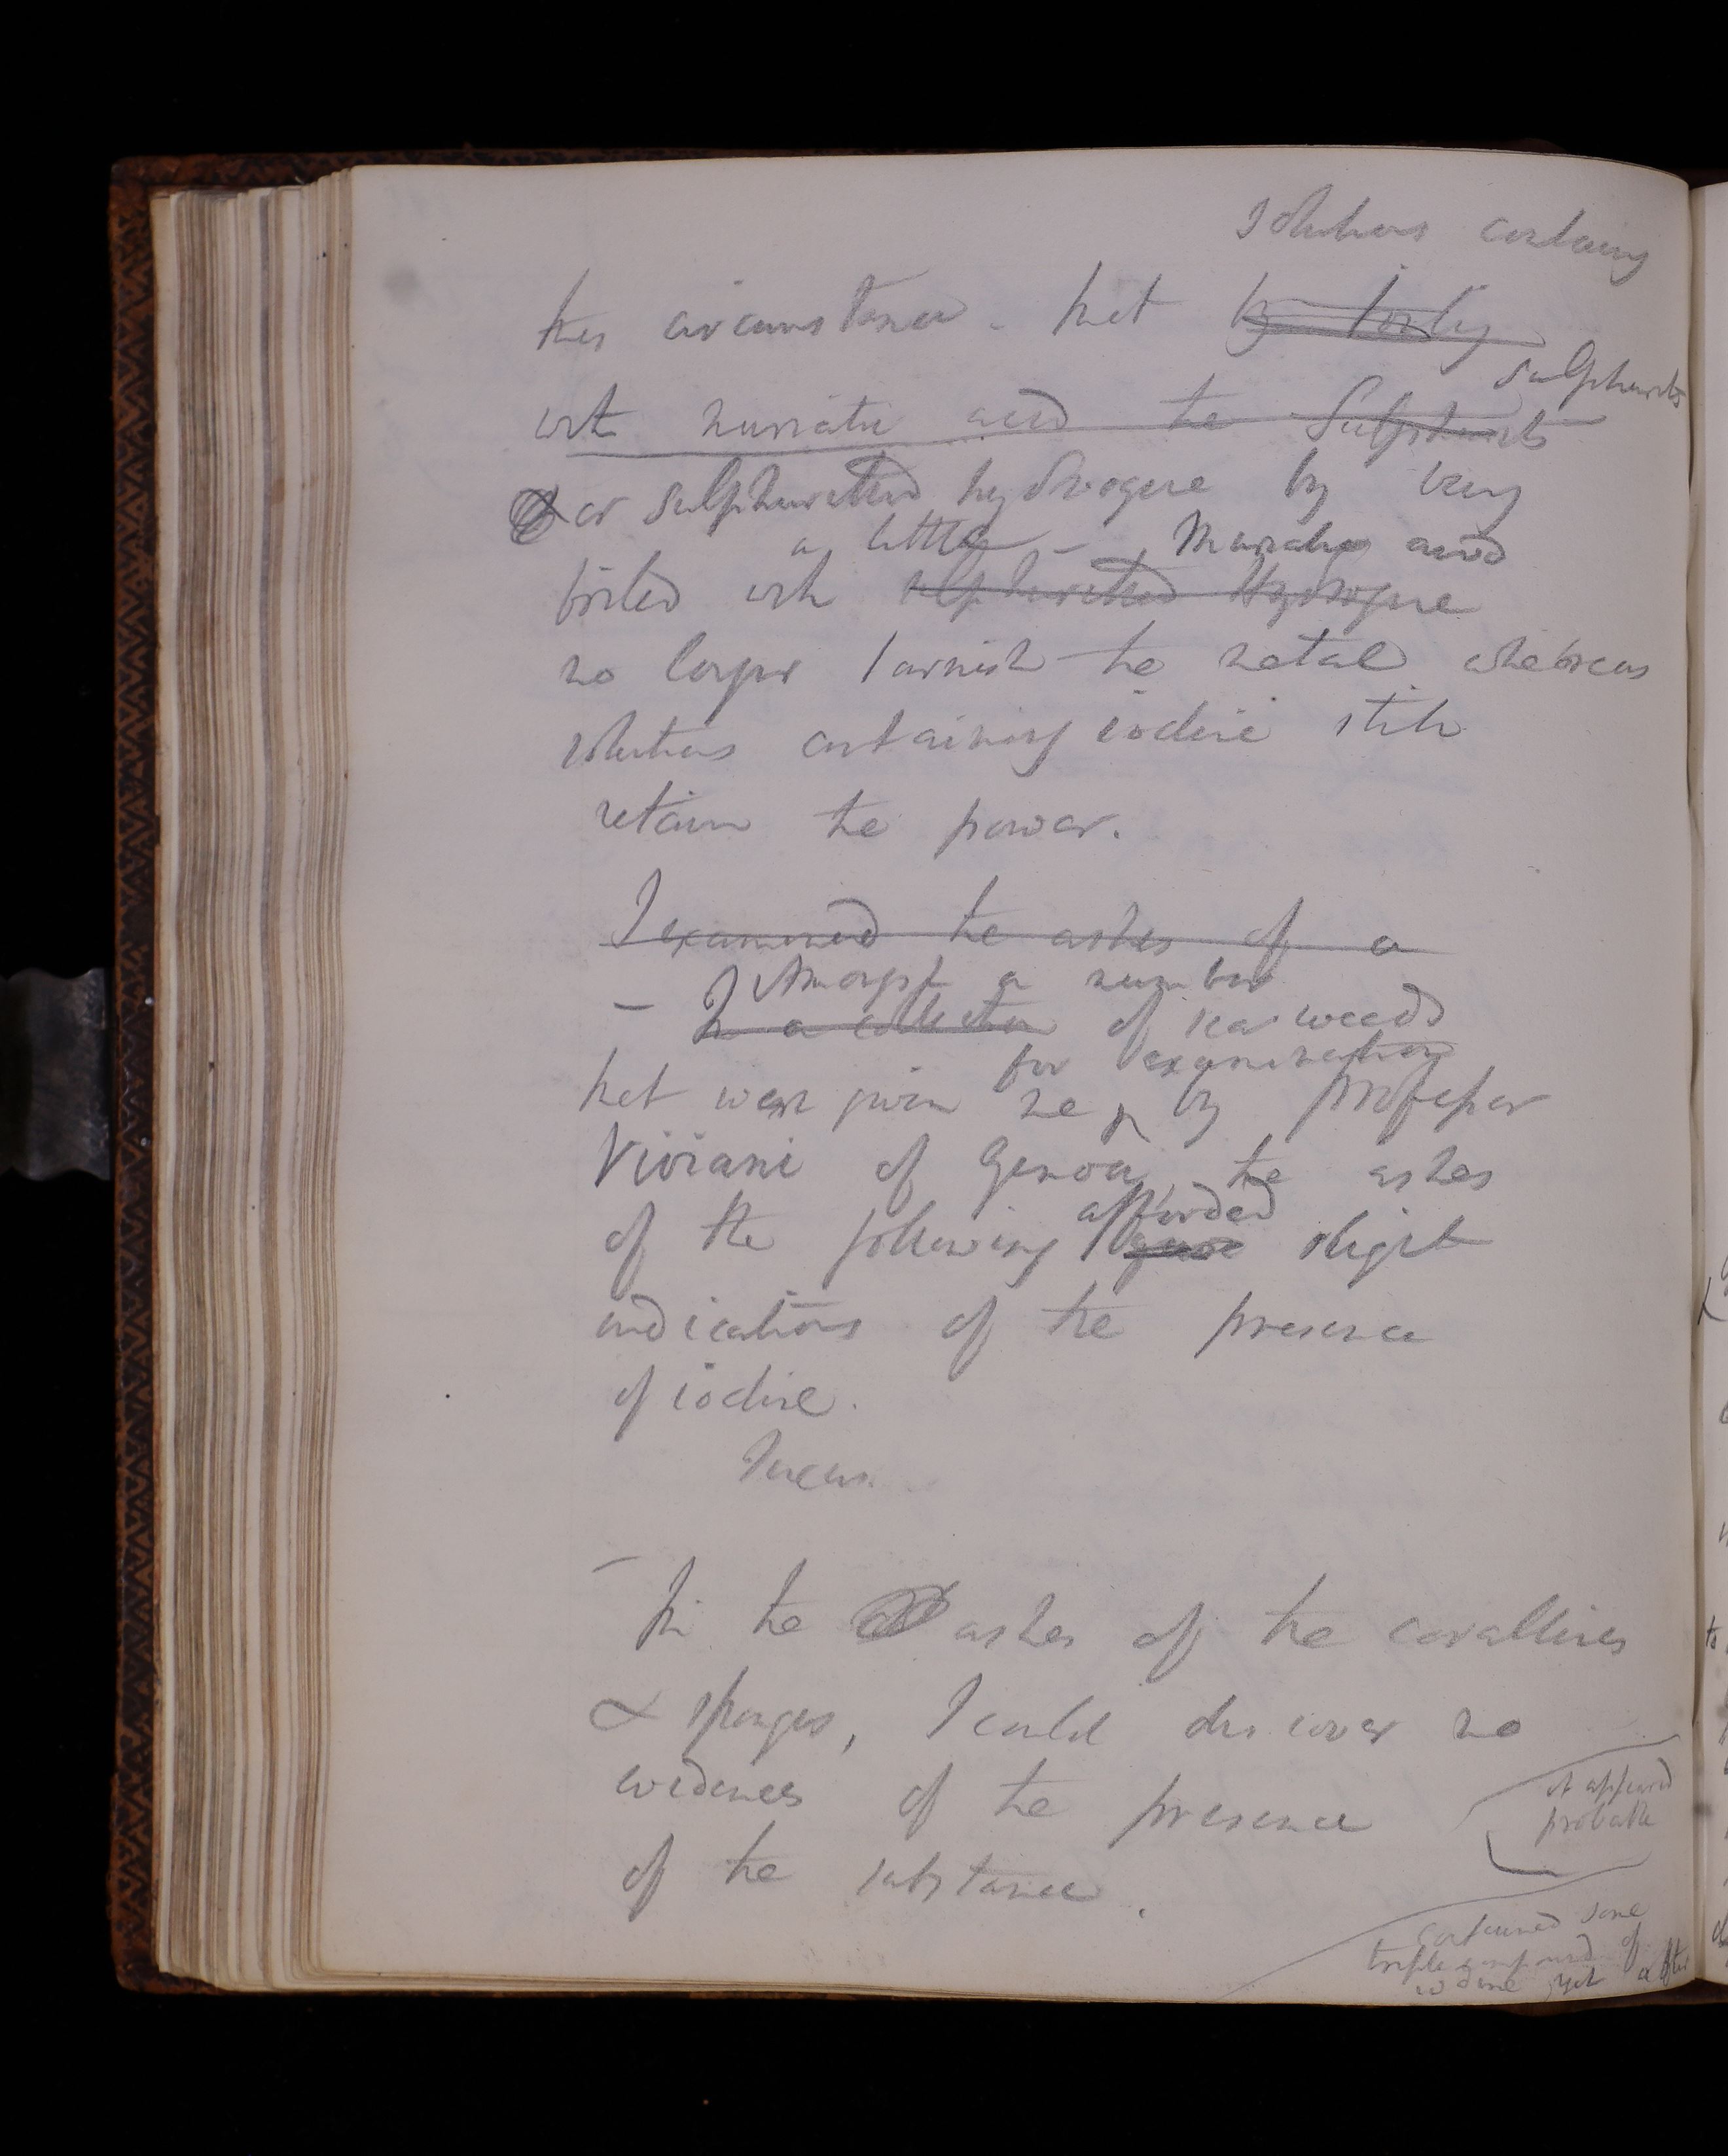 solutions containing
this circumstance. that by boiling
sulphurets
with muriatic acid the Sulphurets
or sulphuretted hydrogene by being
a little Muriatic acid
boiled with sulphuretted Hydrogene
no longer tarnish the metal whereas
solutions containing iodine still
retain the power.
I examined the ashes of a
Amongst a number
- In a collection of sea weeds
for examination
that were given me by Professor
Viviani of Genoa, the ashes
afforded
of the following gave slight
indications of the presence
of iodine.
Fucus.
- In the ashes of the corallines
& sponges, I could discover no
evidences of the presence
it appeared
probable
of the substance.
contained some
triple compound of
iodine yet after